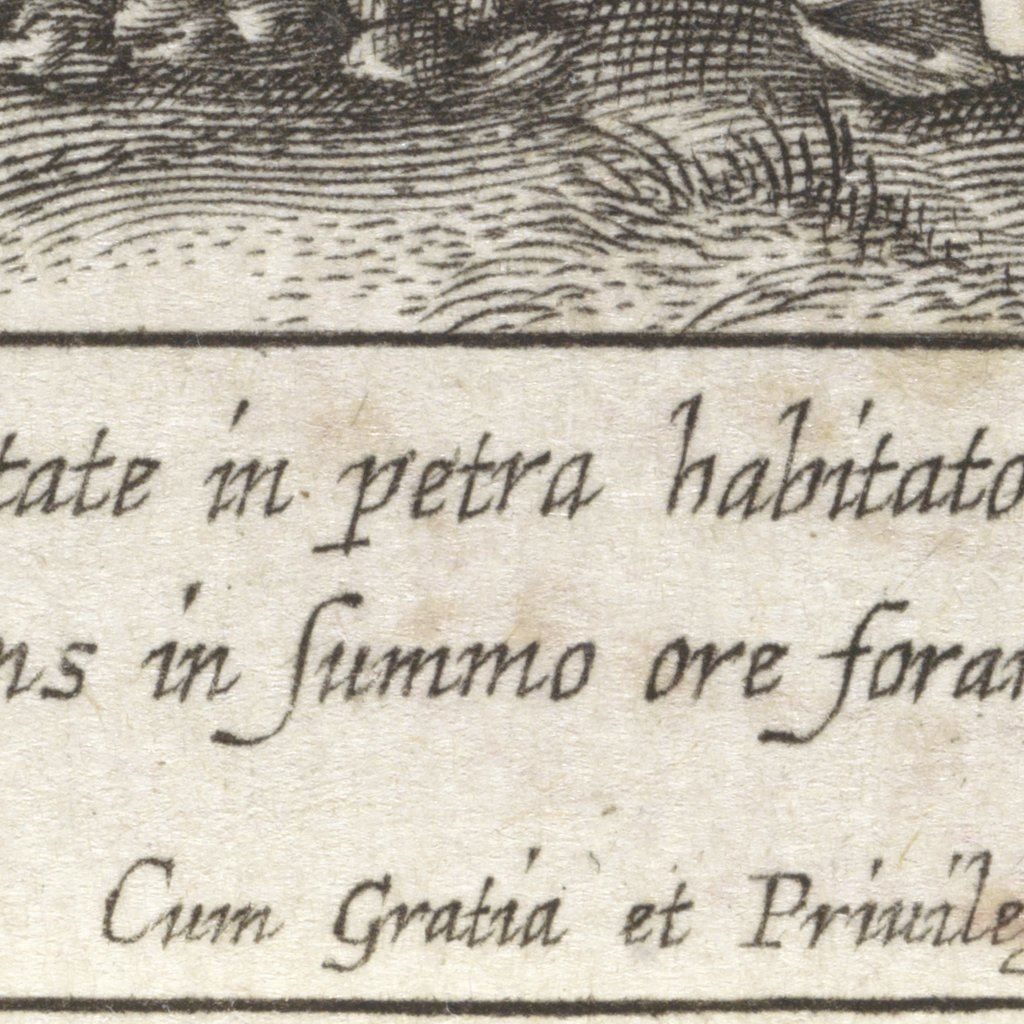 tate in petra habitato
ns in ſummo ore foran
Cum Gratia et Priuileg